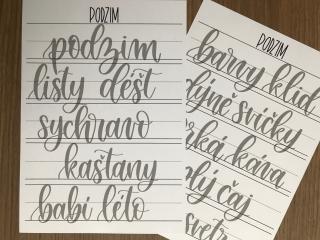 PODZIM
podzim
listy déšť
sychravo
kaštany
babí léto
PODZIM
barvy klid
dýně svíčky
káva
čaj
svetr